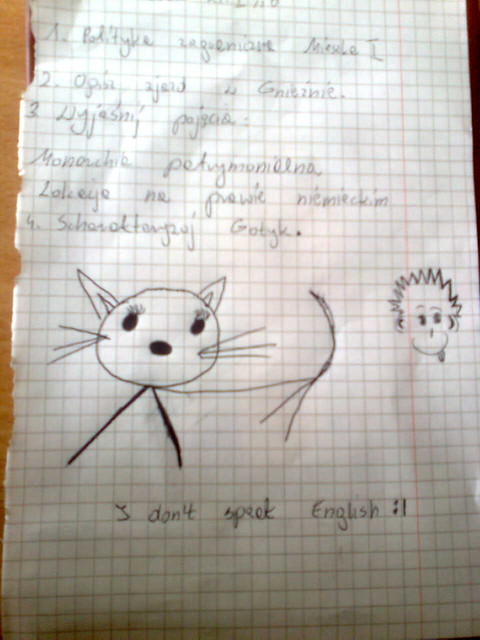 1. Polityka zagraniczna Mieszka I
2. Opisz zjazd w Gnieźnie.
3 Wyjaśnij pojęcia:
Monarchia patrymonialna
Lokacja na prawie niemieckim
4. Scharakteryzuj Gotyk.
I don't speek English :|